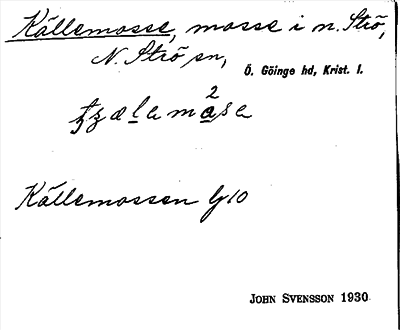 Källemosse, mosse i n. Strö,
N. Strö sn,
Ö. Göinge hd, Krist. l.
2
Källemossen
JOHN SVENSSON 1930